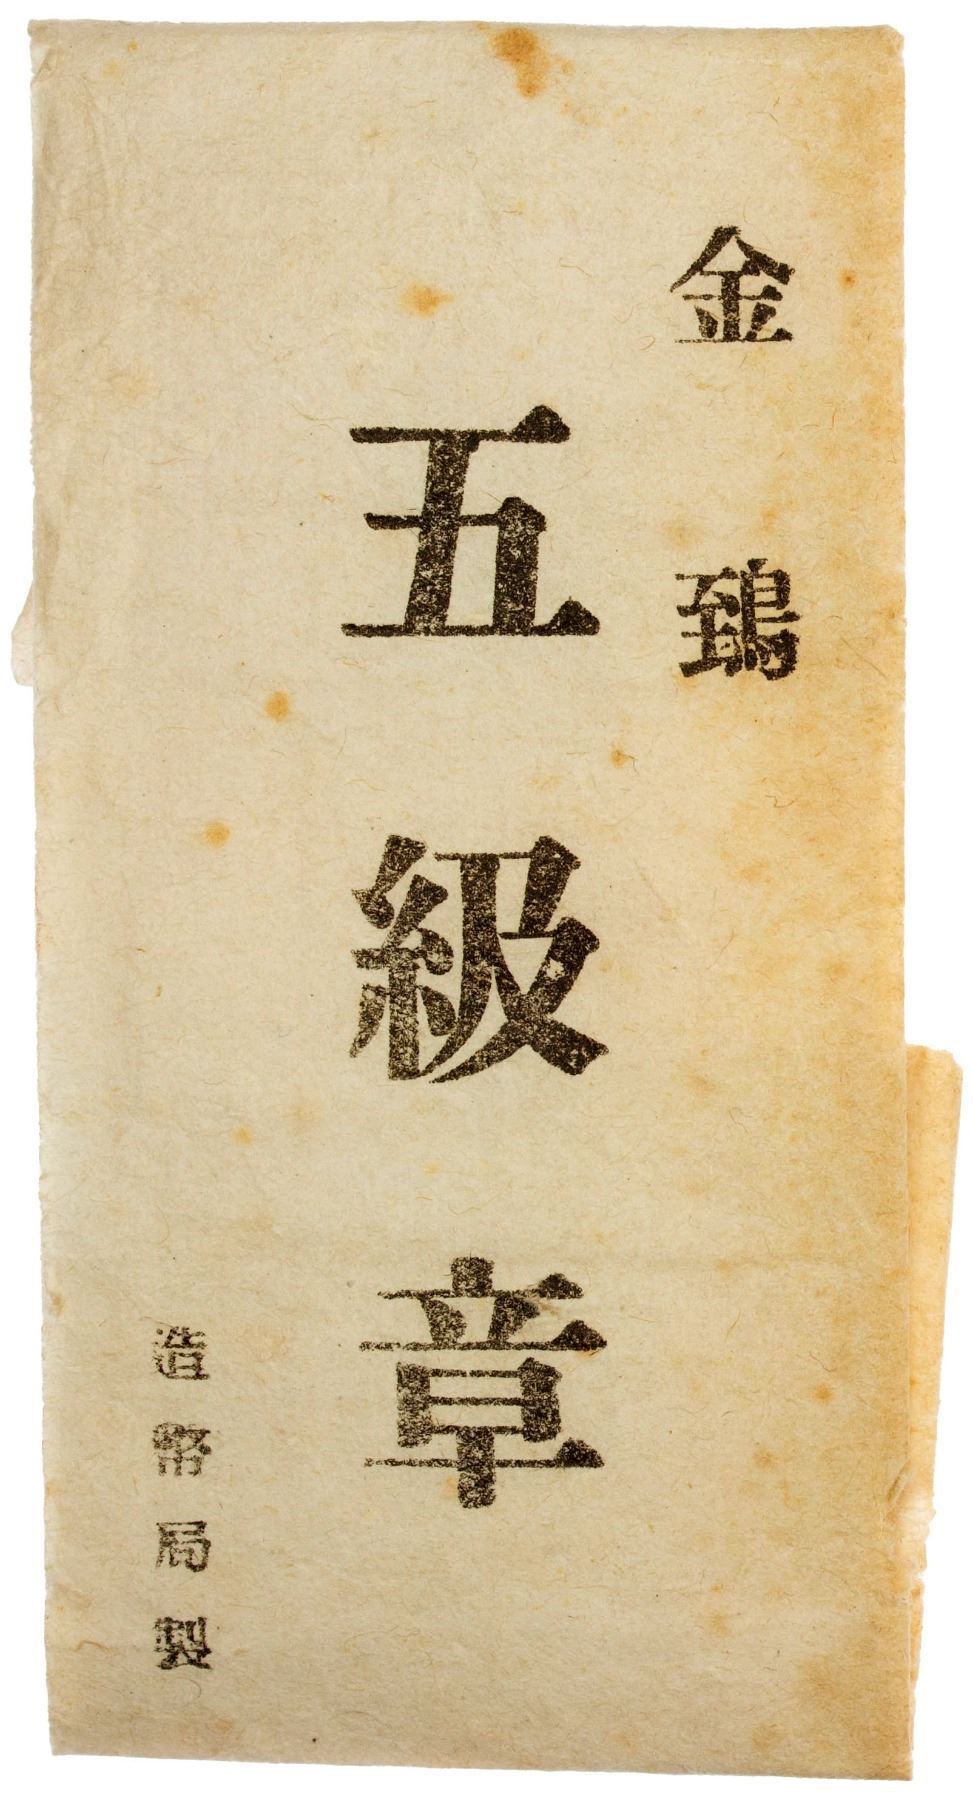 金鵄
五級章
造幣局製